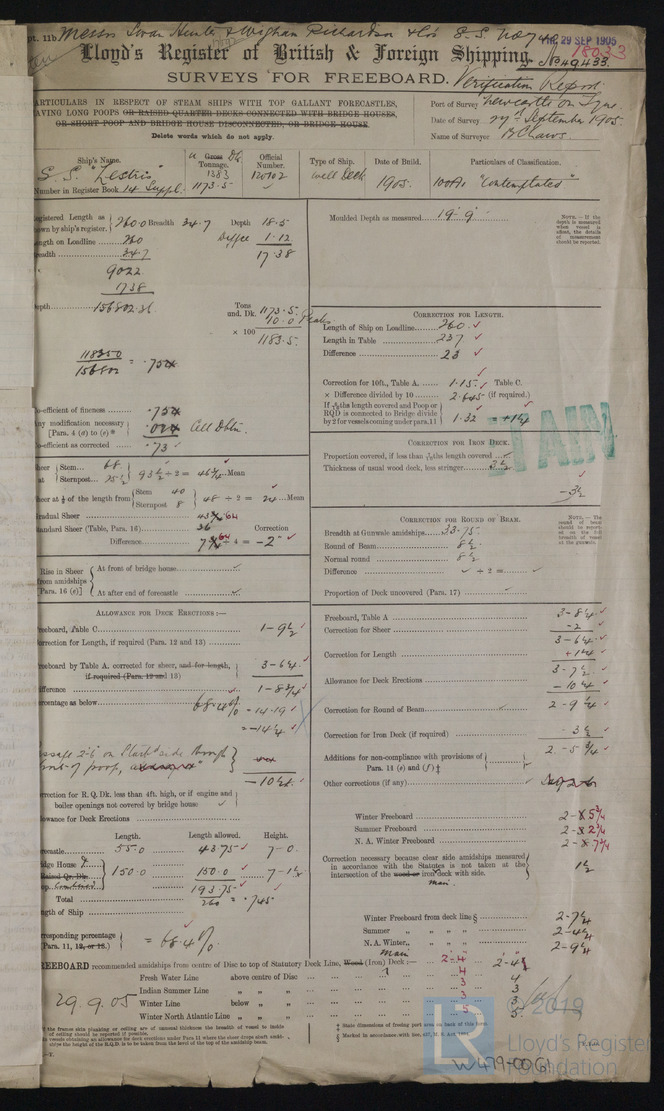 pt. 11b. Messrs Swan Hunter & Wigham Richardson & Co's S.S. No 740
FRI. 29 SEP 1905
18033
Lloyd's Register of British & Foreign Shipping.
No 49433.
SURVEYS FOR FREEBOARD.
Verification Report.
PARTICULARS IN RESPECT OF STEAM SHIPS WITH TOP GALLANT FORECASTLES,
HAVING LONG POOPS OR RAISED QUARTER DECKS CONNECTED WITH BRIDGE HOUSES,
OR SHORT POOP AND BRIDGE HOUSE DISCONNECTED, OR BRIDGE HOUSE.
Delete words which do not apply.
Port of Survey Newcastle on Tyne.
Date of Survey 27th September 1905.
Name of Surveyor
Ship's Name.
S.S. "Lestris"
Number in Register Book 14 Suppl.
U Gross Dk
Tonnage.
1383
1173.5
Official
Number.
120102
Type of Ship.
Well Deck
Date of Build.
1905.
Particulars of Classification.
100A1 "Contemplated"
Registered Length as
shown by ship's register. 260.0 Breadth 34.7 Depth 18.5
Length on Loadline 260 Diffce 1.12
Breadth 34.7 17.38
9022
1738
Depth 156802.36
Tons
und. Dk. 1173.5.
10.0 Peaks
× 100 1183.5.
118350
156802 = .754
Co-efficient of fineness .754
Any modification necessary
[Para. 4 (d) to (e)* .024 Cell Dbtm.
Co-efficient as corrected .73
Sheer at { Stem 68
Sternpost 25½ } 93½ ÷ 2 = 46¾ Mean
Sheer at ⅛ of the length from { Stem 40
Sternpost 8 } 48 ÷ 2 = 24 Mean
Gradual Sheer 43
Standard Sheer (Table, Para. 16) 36 Correction
Difference ÷ 4 = -2"
Rise in Sheer
from amidships
[Para. 16 (e)]
At front of bridge house
At after end of forecastle
ALLOWANCE FOR DECK ERECTIONS :—
Freeboard, Table C 1-9½
Correction for Length, if required (Para. 12 and 13)
Freeboard by Table A. corrected for sheer, and for length,
if required (Para. 12 and 13) 3-6¼
Difference 1-8¾
Percentage as below 68.4% = 14.19
= -14¼
Passage 2'-6" on Starbd side through
front of poop,
-10¼
Correction for R. Q. Dk. less than 4ft. high, or if engine and
boiler openings not covered by bridge house
Allowance for Deck Erections
Length. Length allowed. Height.
Forecastle 55.0 43.75 7-0
Bridge House &
Raised Qr. Dk.
Poop Combined 150.0 150.0
193.75
Total 260 = .745
Length of Ship
Corresponding percentage
(Para. 11, 12, or 13.) = 68.4%
Moulded Depth as measured 19'-9"
NOTE.—If the
depth is measured
when vessel is
afloat, the details
of measurement
should be reported.
CORRECTION FOR LENGTH.
Length of Ship on Loadline 260
Length in Table 237
Difference 23
Correction for 10ft., Table A. 1.15 Table C.
× Difference divided by 10 2.645 (if required.)
If 6/10ths length covered and Poop or
RQD is connected to Bridge divide
by 2 for vessels coming under para. 11 1.32 = +1¼
CORRECTION FOR IRON DECK.
Proportion covered, if less than 7/10ths length covered
Thickness of usual wood deck, less stringer 3½
-3½
CORRECTION FOR ROUND OF BEAM.
Breadth at Gunwale amidships 33.75
Round of Beam 8½
Normal round 8½
Difference ÷ 2 =
Proportion of Deck uncovered (Para. 17)
NOTE.—The
round of beam
should be reported
on the full
breadth of vessel
at the gunwale.
Freeboard, Table A 3-8¼
Correction for Sheer -2
3-6¼
Correction for Length +1¼
3-7½
Allowance for Deck Erections -10¼
2-9¼
Correction for Round of Beam
Correction for Iron Deck (if required) 3½
2-5¾
Additions for non-compliance with provisions of
Para. 11 (e) and (f) ‡
Other corrections (if any)
Winter Freeboard 2-5¾
Summer Freeboard 2-2¾
N. A. Winter Freeboard 2-7¾
Correction necessary because clear side amidships measured
in accordance with the Statutes is not taken at the
intersection of the wood or iron deck with side. 1½
main.
Winter Freeboard from deck line § 2-7¼
Summer " " " " 2-4¼
N. A. Winter " " " " 2-9¼
FREEBOARD recommended amidships from centre of Disc to top of Statutory Deck Line, Wood (Iron) Deck :— 2-4 2-4¼
Main
Fresh Water Line above centre of Disc 4 4
Indian Summer Line " " " 3 3
Winter Line below " " 3 3
Winter North Atlantic Line " " " 5 5
29.9.05
† State dimensions of freeing port area on back of this form.
© 2019
Lloyd's Register
Foundation
W479-0061